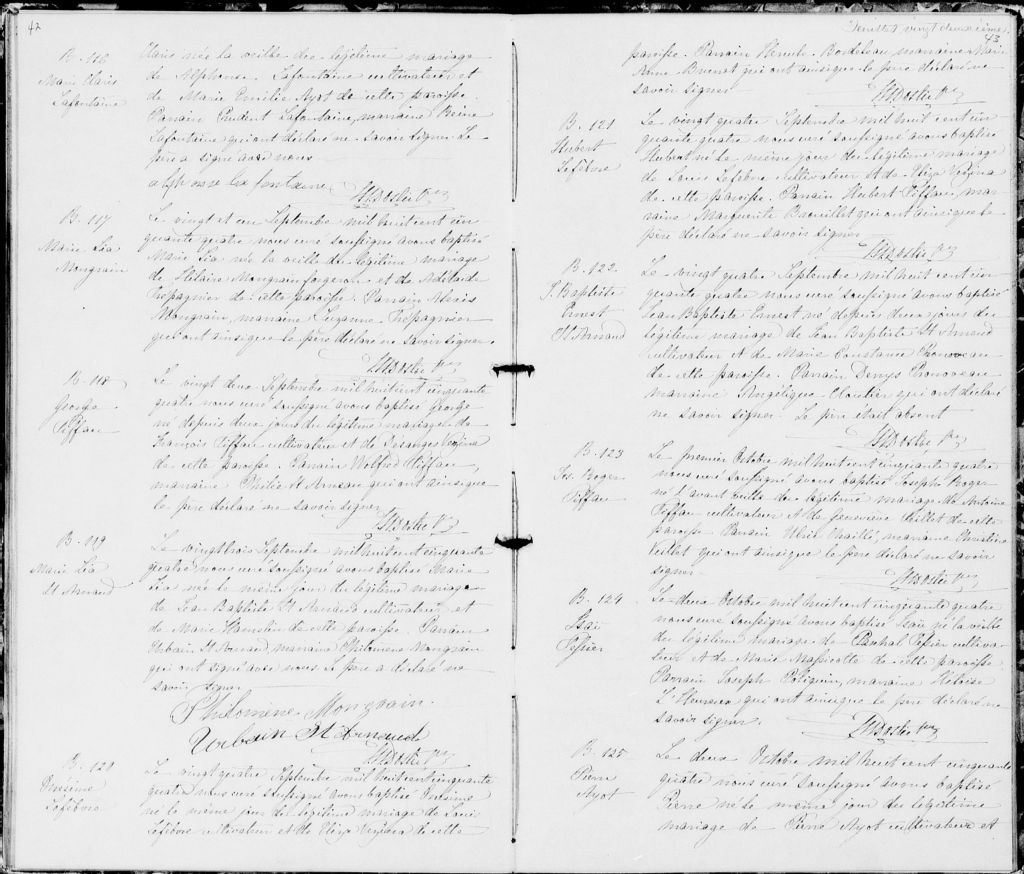 42
B. 116
Marie Claris
Lafontaine
Claris née la veille des légitime mariage
de Alphonse Lafontaine cultivateur et
de Marie Emélie Ayot de cette paroisse
Parrain Prudent Lafontaine, marraine
Lafontaine qui ont déclaré ne savoir signer Le
père a signé avec nous
B. 117
Marie Léa
Mongrain
Le vingt et un Septembre mil huit cent cin
quante quatre nous curé soussigné avons baptisé
Marie Léa née la veille du légitime mariage
de Hilaire Mongrain forgeron et de Adélaïde
Trépagnier de cette paroisse. Parrain Alexis
Mongrain, marraine Suzanne Trépagnier
qui ont ainsi que le père déclaré ne savoir signer.
B. 118
George
Tiffau
Le vingt deux Septembre mil huit cent cinquante
quatre nous curé soussigné avons baptisé George
né depuis deux jours du légitime mariage de
François Tiffau cultivateur et de Désanges
de cette paroisse. Parrain Wolfred Tiffau,
marraine Philie St Arneau qui ont ainsi que
le père déclaré ne savoir signer
B. 119
Marie Léa
St Arnaud
Le vingt trois Septembre mil huit cent cinquante
quatre nous curé soussigné avons baptisé Marie
Léa née le même jour du légitime mariage
de Jean Baptiste St Arnaud cultivateur et
de Marie Hamelin de cette paroisse. Parrain
Urbain St Arnaud, marraine Philomène Mongrain
qui ont signé avec nous le père a déclaré ne
savoir signer
Philomène Mongrain.
Urbain St Arnaud
B. 120
Onésime
Lefebvre
Le vingt quatre Septembre mil huit cent cinquante
quatre nous curé soussigné avons baptisé Onésime
né le même jour du légitime mariage de Louis
Lefebvre cultivateur et de Eliza de cette
Feuillet vingt deuxième.
43
paroisse. Parrain Bordeleau, marraine Marie
Anne qui ont ainsi que le père déclaré ne
savoir signer
B. 121
Hubert
Lefebvre
Le vingt quatre Septembre mil huit cent cin
quante quatre nous curé soussigné avons baptisé
Hubert né le même jour du légitime mariage
de Louis Lefebvre cultivateur et de Eliza
de cette paroisse. Parrain Hubert Tiffau, mar
raine Marguerite qui ont ainsi que le
père déclaré ne savoir signer
B. 122
J. Baptiste
Ernest
St Arnaud
Le vingt quatre Septembre mil huit cent cin
quante quatre nous curé soussigné avons baptisé
Jean Baptiste Ernest né depuis deux jours du
légitime mariage de Jean Baptiste St Arnaud
cultivateur et de Marie Constance Pronoveau
de cette paroisse. Parrain Denys Pronoveau
marraine Angélique Cloutier qui ont déclaré
ne savoir signer. Le père était absent
B. 123
Jos. Roger
Tiffau
Le premier Octobre mil huit cent cinquante quatre
nous curé soussigné avons baptisé Joseph Roger
né l'avant veille du légitime mariage de Antoine
Tiffau cultivateur et de Geneviève Veillet de cette
paroisse Parrain Ulric marraine
Veillet qui ont ainsi que le père déclaré ne savoir
signer
B. 124
Isaïe
Tessier
Le deux Octobre mil huit cent cinquante quatre
nous curé soussigné avons baptisé Isaïe né la veille
du légitime mariage de Paschal Tessier cultiva-
teur et de Marie Massicotte de cette paroisse
Parrain Joseph Poliquin, marraine Héloïse
L'Heureux qui ont ainsi que le père déclaré ne
savoir signer.
B. 125
Pierre
Ayot
Le deux Octobre mil huit cent cinquante
quatre nous curé soussigné avons baptisé
Pierre né le même jour du légitime
mariage de Pierre Ayot cultivateur et